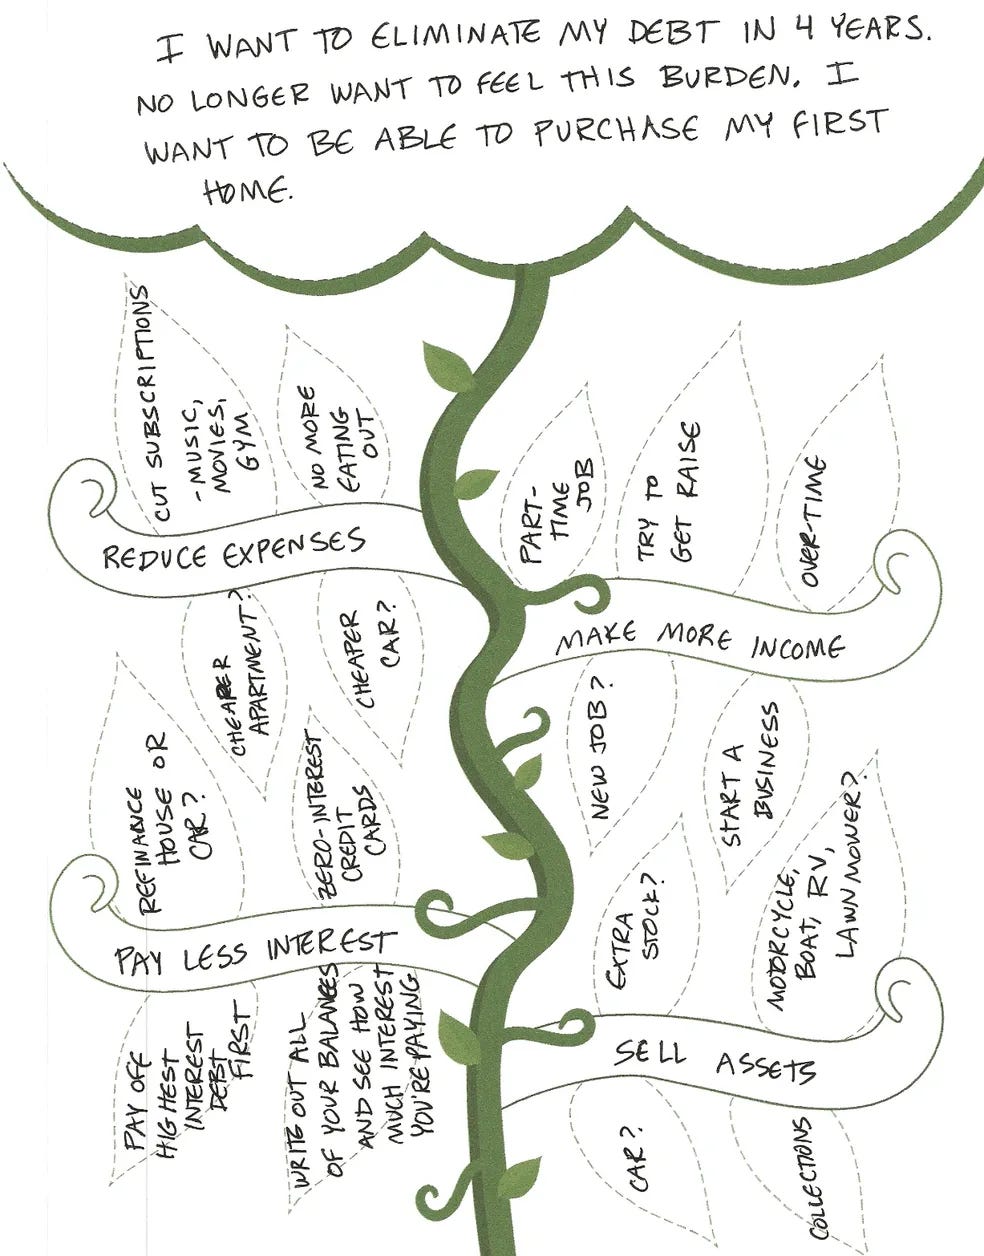 I WANT TO ELIMINATE MY DEBT IN 4 YEARS.
NO LONGER WANT TO FEEL THIS BURDEN. I
WANT TO BE ABLE TO PURCHASE MY FIRST
HOME.
CUT SUBSCRIPTIONS
- MUSIC,
MOVIES,
GYM
NO MORE
EATING
OUT
REDUCE EXPENSES
CHEAPER
APARTMENT?
CHEAPER
CAR?
PART-
TIME
JOB
TRY TO
GET RAISE
OVER-TIME
MAKE MORE INCOME
NEW JOB?
START A
BUSINESS
REFINANCE
HOUSE OR
CAR?
ZERO-INTEREST
CREDIT
CARDS
PAY LESS INTEREST
PAY OFF
HIGHEST
INTEREST
DEBT
FIRST
WRITE OUT ALL
OF YOUR BALANCES
AND SEE HOW
MUCH INTEREST
YOU'RE PAYING
EXTRA
STOCK?
MOTORCYCLE,
BOAT, RV,
LAWNMOWER?
SELL ASSETS
CAR?
COLLECTIONS